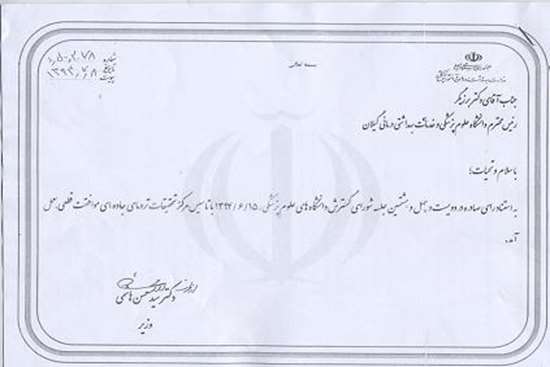 بسمه تعالی
شماره
تاریخ
پیوست
جناب آقای دکتر برزیگر
رئیس محترم دانشگاه علوم پزشکی و خدمات بهداشتی درمانی گیلان
با سلام و تحیات؛
به استناد رای صادره در دویست و چهل و هشتمین جلسه شورای گسترش دانشگاه های علوم پزشکی، ۱۳۹۲/۶/۱۵ با تاسیس مرکز تحقیقات ترومای جاده ای موافقت قطعی بعمل
آمد.
دکتر سید حسن هاشمی
وزیر